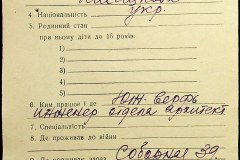 4. Національність укр.
5. Родинний стан
при ньому діти до 16 років:
1)
2)
3)
4)
5)
6. Ким, працює і де Юж. верфь
инженер отдела архитект
7. Спеціальність
8. Де проживав до війни
Соборная 39